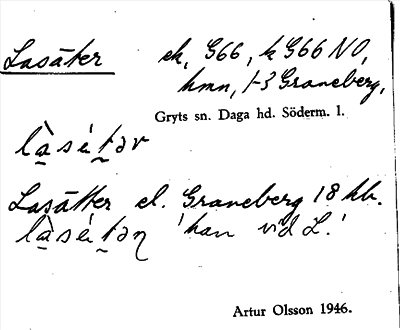 Lasäter ek, G66, k G66 NO,
hmn, 1-3 Graneberg,
Gryts sn. Daga hd. Söderm. l.
là̱sét̠ər
Lasätter el. Graneberg 18 hb.
là̱sét̠əη 'han vid L.'
Artur Olsson 1946.